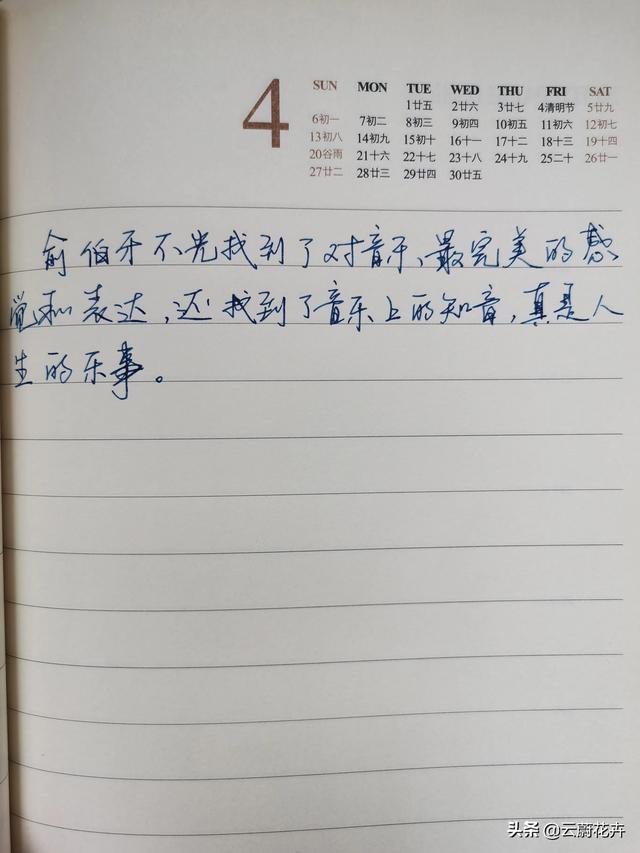 4
SUN MON TUE WED THU FRI SAT
1廿五 2廿六 3廿七 4清明节 5廿九
6初一 7初二 8初三 9初四 10初五 11初六 12初七
13初八 14初九 15初十 16十一 17十二 18十三 19十四
20谷雨 21十六 22十七 23十八 24十九 25二十 26廿一
27廿二 28廿三 29廿四 30廿五
俞伯牙不光找到了对音乐、最完美的感
觉和表达,还找到了音乐上的知音,真是人
生的乐事。
头条 @云蔚花卉